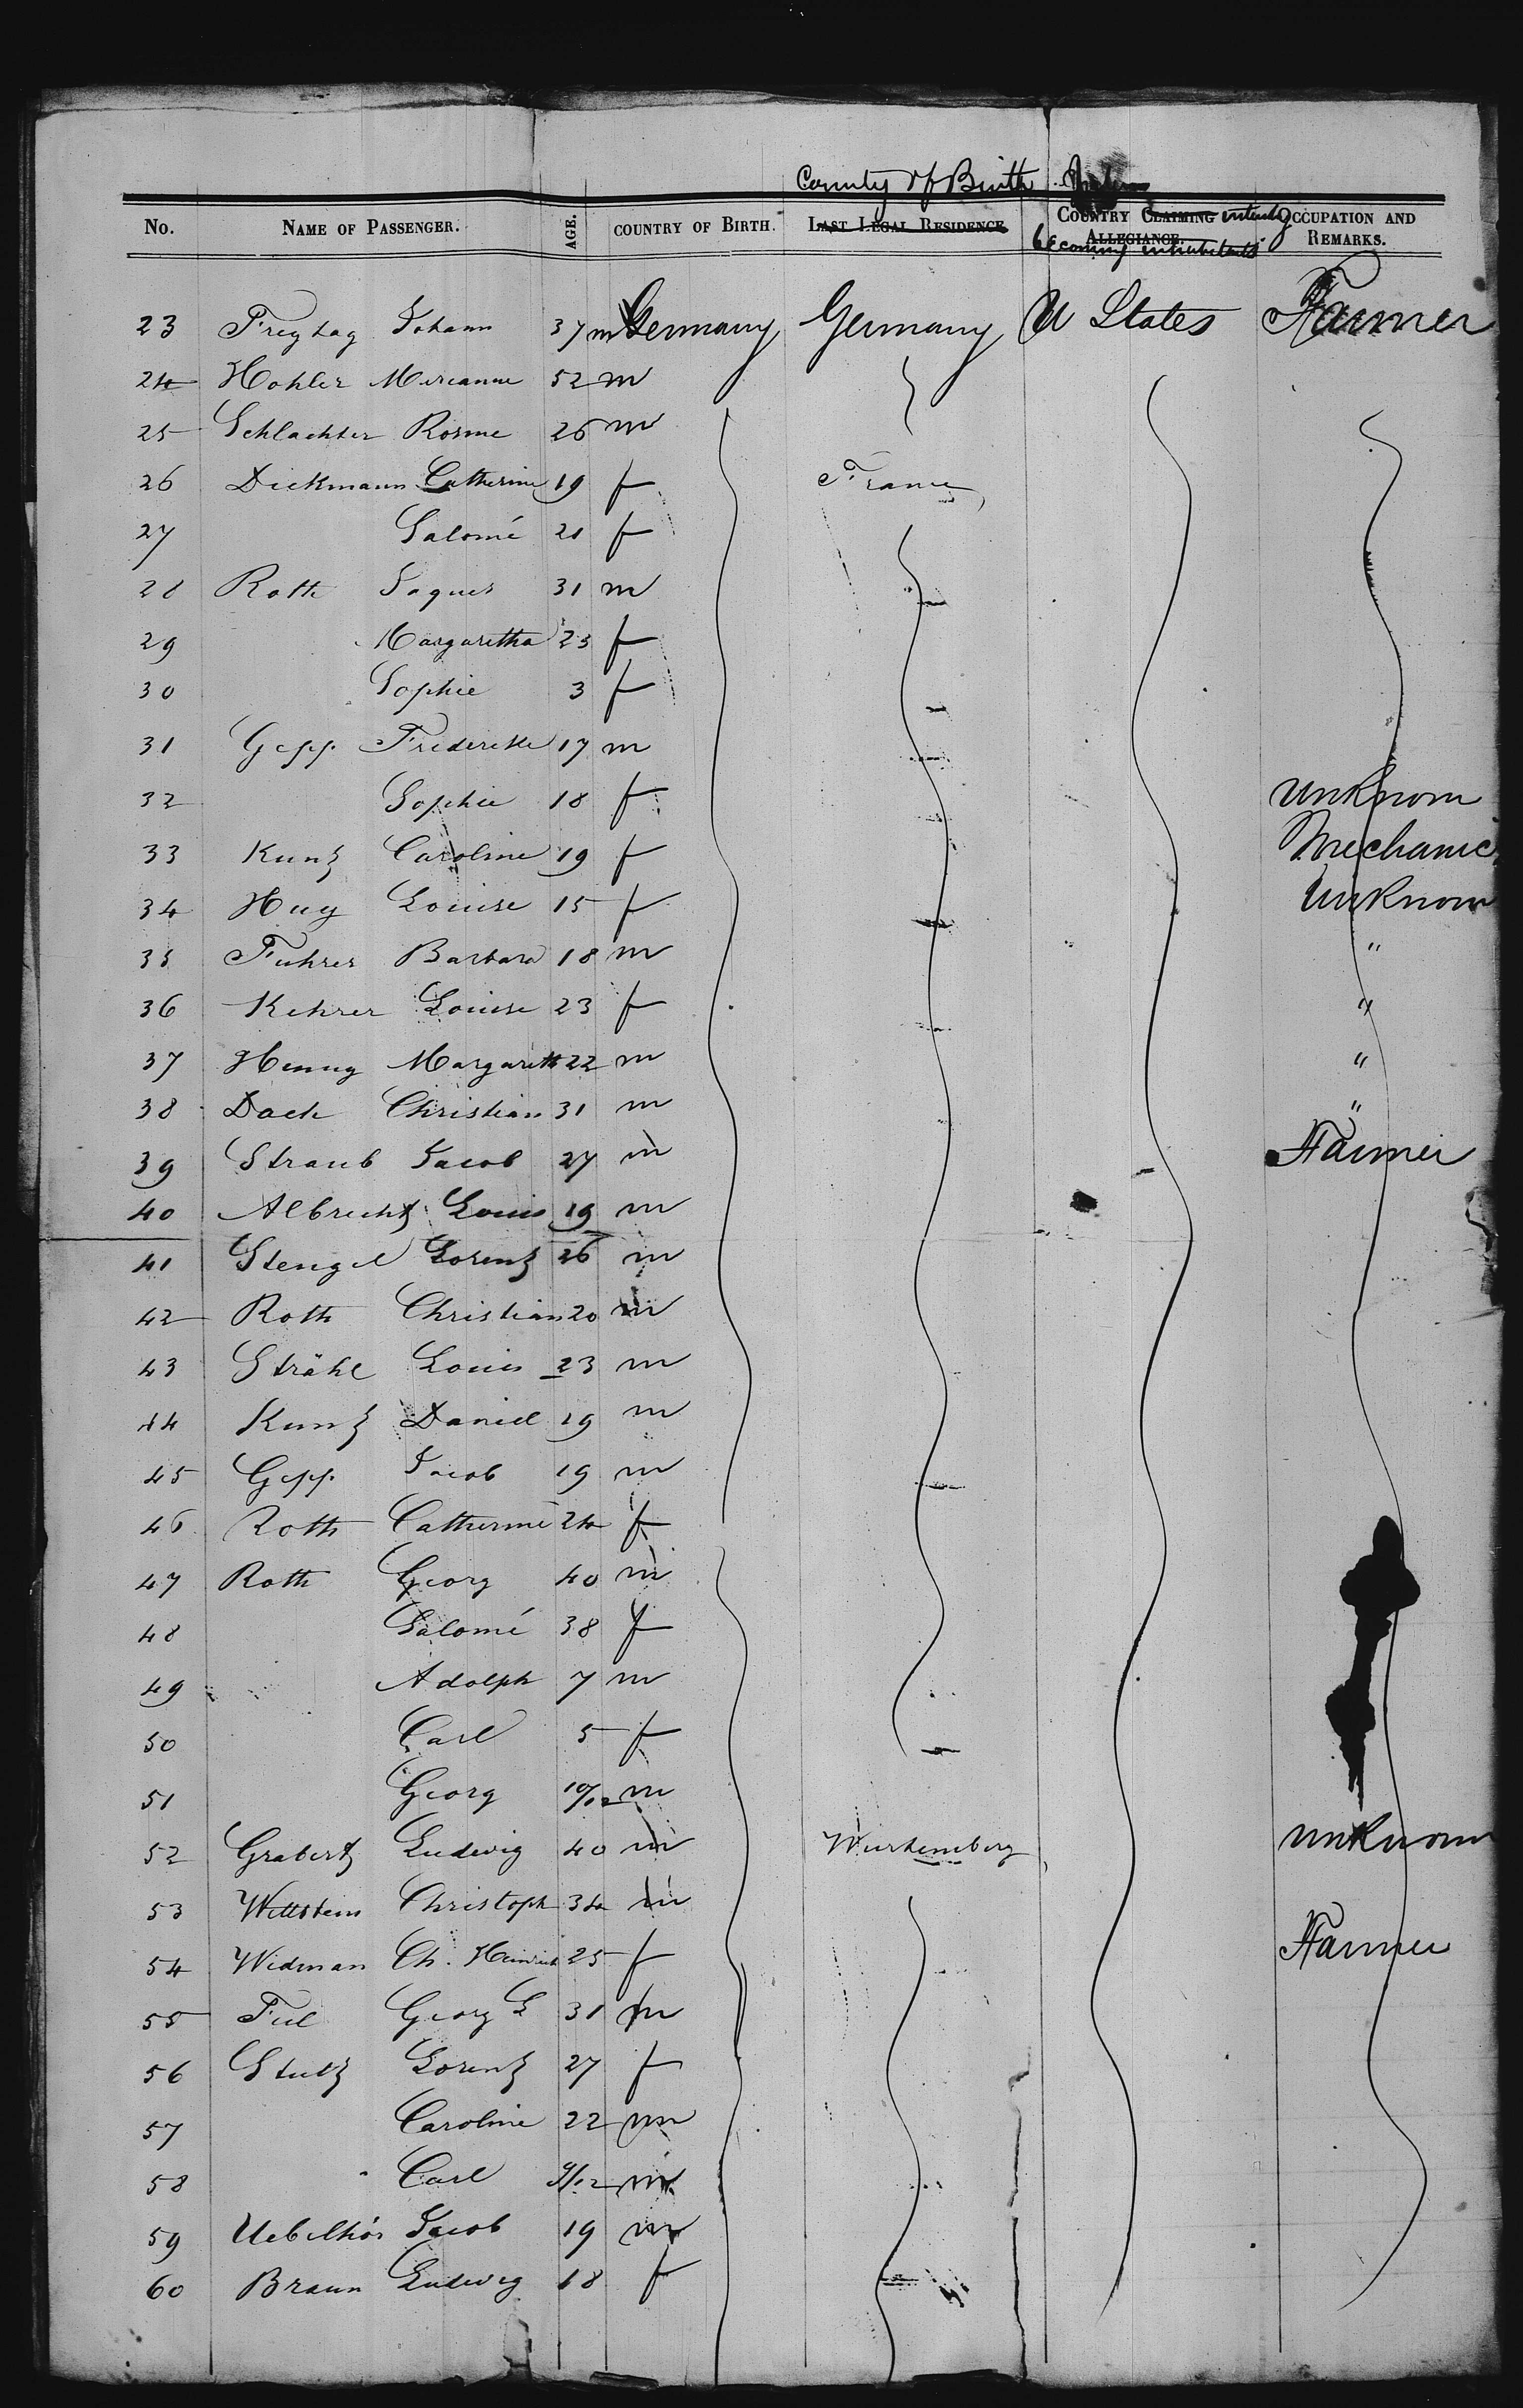 County of Birth
No. NAME OF PASSENGER. AGE. COUNTRY OF BIRTH. LAST LEGAL RESIDENCE COUNTRY CLAIMING intends OCCUPATION AND
ALLEGIANCE. REMARKS.
becoming inhabitants
23 Freytag Johann 37 m Germany Germany U States Farmer
24 Hohler 52 m
25 Schlachter Rosine 26 m
26 Diekmann Catherine 19 f France
27 Salomé 21 f
28 Roth Jaques 31 m
29 Margaretha 25 f
30 Sophie 3 f
31 Gepp Frederike 17 m
32 Sophie 18 f Unknown
33 Kuntz Caroline 19 f Mechanic
34 Hug Louise 15 f Unknown
35 Fuhrer Barbara 18 m "
36 Kehrer Louise 23 f "
37 Henny Margareth 22 m "
38 Dach Christian 31 m "
39 Straub Jacob 27 m Farmer
40 Albrecht Louis 19 m
41 Stengel Lorentz 26 m
42 Roth Christian 20 m
43 Strähl Louis 23 m
44 Kuntz Daniel 19 m
45 Gepp Jacob 19 m
46 Roth Catherine 24 f
47 Roth Georg 40 m
48 Salomé 38 f
49 Adolph 7 m
50 Carl 5 f
51 Georg 10/12 m
52 Ludwig 40 m Wurtemberg Unknown
53 Wittstein Christoph 34 m
54 Widman Ch. Heinrich 25 f Farmer
55 Georg L 31 m
56 Stutz Lorentz 27 f
57 Caroline 22 m
58 Carl 9/12 m
59 Uebelhör Jacob 19 m
60 Braun Ludwig 18 f